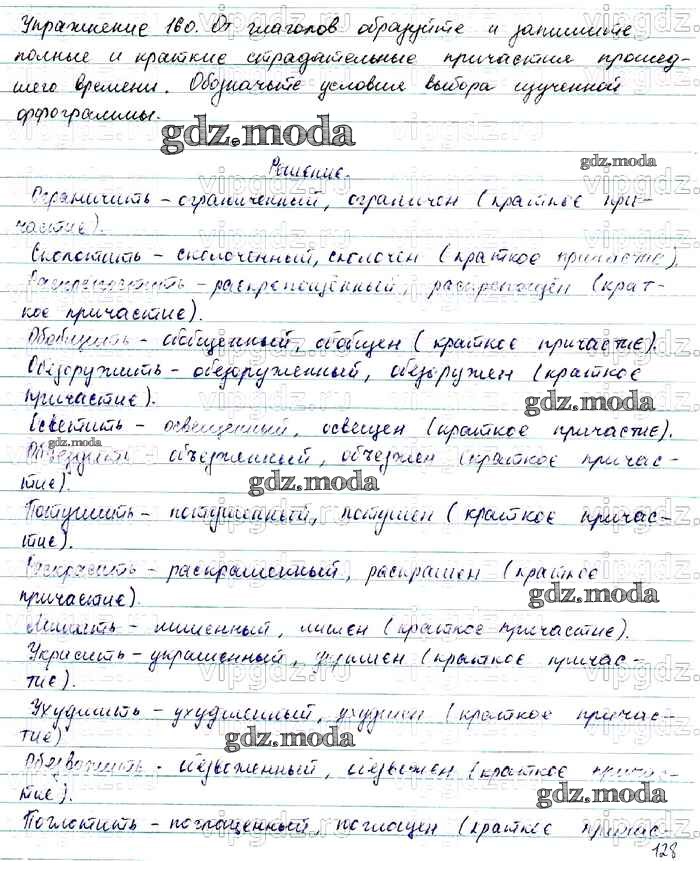 Упражнение 160. От глаголов образуйте и запишите
полные и краткие страдательные причастия прошед-
шего времени. Обозначьте условия выбора изученной
орфограммы.
gdz.moda
gdz.moda
Решение.
Ограничить – ограниченный, ограничен (краткое при-
частие).
Сколотить – сколоченный, сколочен (краткое причастие).
Раскрепостить – раскрепощённый, раскрепощён (крат-
кое причастие).
Обобщить – обобщенный, обобщен (краткое причастие).
Обезоружить – обезоруженный, обезоружен (краткое
причастие).
gdz.moda
Осветить – освещенный, освещен (краткое причастие).
gdz.moda
объезженный, объезжен (краткое причас-
тие).
gdz.moda
Потушить – потушенный, потушен (краткое причас-
тие).
Раскрасить – раскрашенный, раскрашен (краткое
причастие).
gdz.moda
Лишить – лишенный, лишен (краткое причастие).
Украсить – украшенный, (краткое причас-
тие).
Ухудшить – (краткое причас-
тие)
gdz.moda
Обезводить – обезвоженный, обезвожен (краткое причас-
тие).
gdz.moda
Поглотить – поглощенный, поглощен (краткое причас-
128